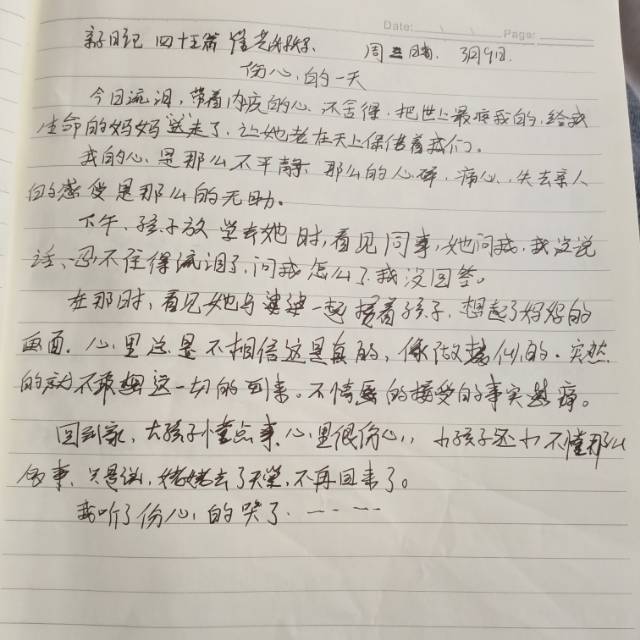 Date: Page:
亲子日记 四十五篇 周三 晴 3月9日.
伤心的一天
今日流泪,带着内疚的心,不舍得,把世上最疼我的,给我
生命的妈妈送走了,让她老在天上保佑着我们。
我的心是那么不平静 那么的心碎,痛心,失去亲人
的感受是那么的无助。
下午,孩子放学去她时,看见同事,她问我,我没说
话,忍不住得流泪了,问我怎么了,我没回答。
在那时,看见她与婆婆一起接着孩子,想起了妈妈的
画面.心里总是不相信这是真的,像做梦似的.突然
的就不敢想这一切的到来。不情愿的接受的事实悲痛。
回到家,大孩子懂点事,心里很伤心,小孩子还小不懂那么
多事,只是说,姥姥去了天堂,不再回来了。
我听了伤心的哭了.……